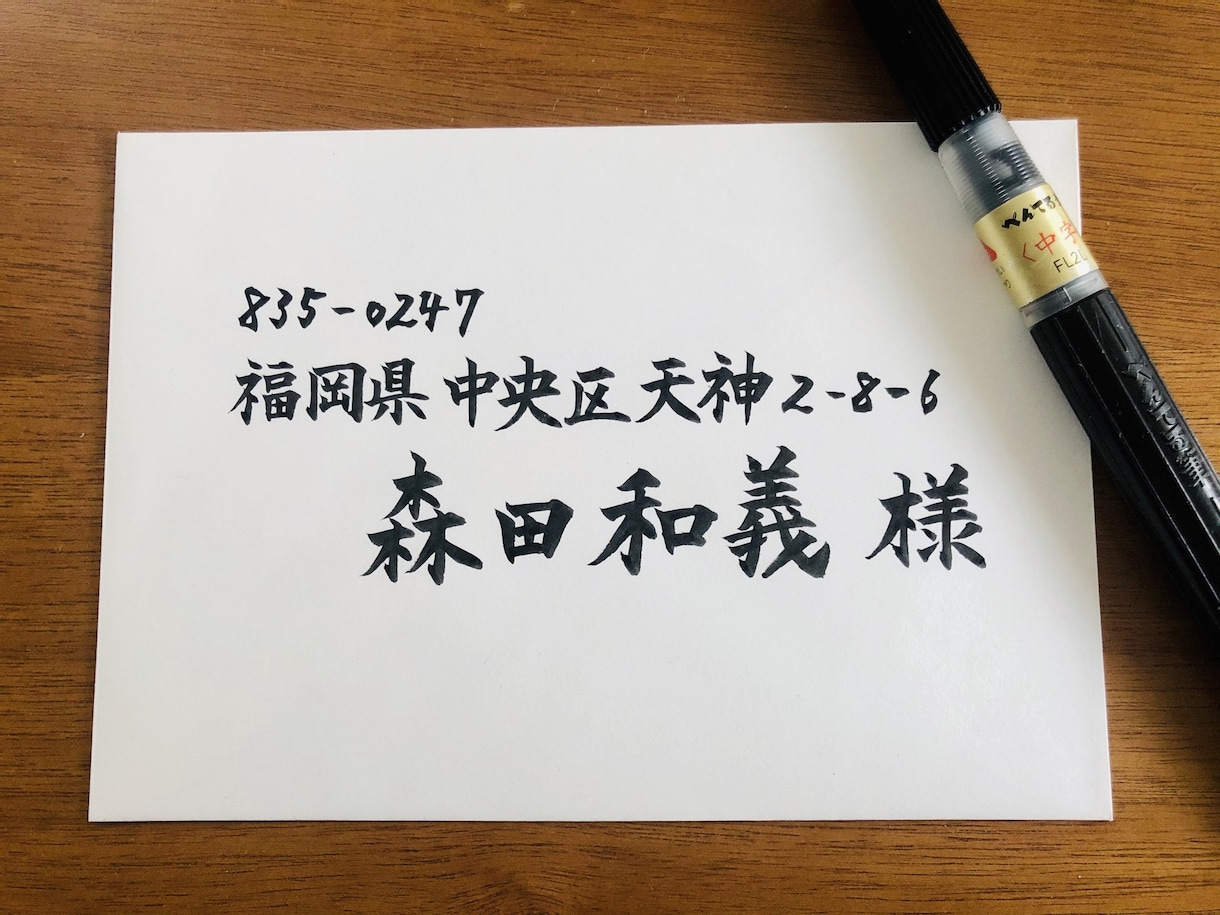 835-0247
福岡県中央区天神2-8-6
森田和義 様
ぺんてる
<中字
FL2L